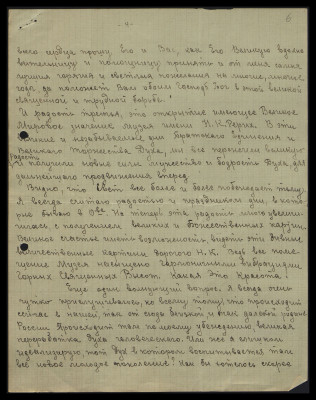 - 4 -
6
всего сердца прошу Его и Вас, как его Великую
и помощницу принять и от меня самые
лучшие горячие и светлые пожелания на многие, многие
года да поможет Вам обоим Господь Бог в этой великой
священной и трудной борьбе.
И радость третья, это открытие имеющее Великое
Мировое значение Музея имени Н.К. Рериха. В эти
Великие и незабываемые дни Братского единения и
Великого Торжества Духа, мы все пережили великую
радость
и получили новые силы, мужество и бодрость Духа для
дальнейшего продвижения вперед.
Видно, что Свет все более и более побеждает тьму.
Я всегда считаю радостью и праздником дни, в кото-
рые бываю в О-ве. Но теперь эта радость много увели-
чилась с получением великих и Божественных картин.
Великое счастье иметь возможность видеть эти дивные
божественные картины дорогого Н.К. Ведь все поме-
щение Музея насыщено
Горних Священных Высот. Какая это Красота!
Еще один волнующий вопрос. Я всегда очень
чутко прислушиваюсь ко всему тому, что происходит
сейчас в нашей так от сюда близкой и так далекой родине
России. Происходит там по моему убеждению, великая
переработка духа человеческого. Или же я слишком
идеализирую, тот дух в котором воспитывается там
все новое молодое поколение? Как бы хотелось скорее